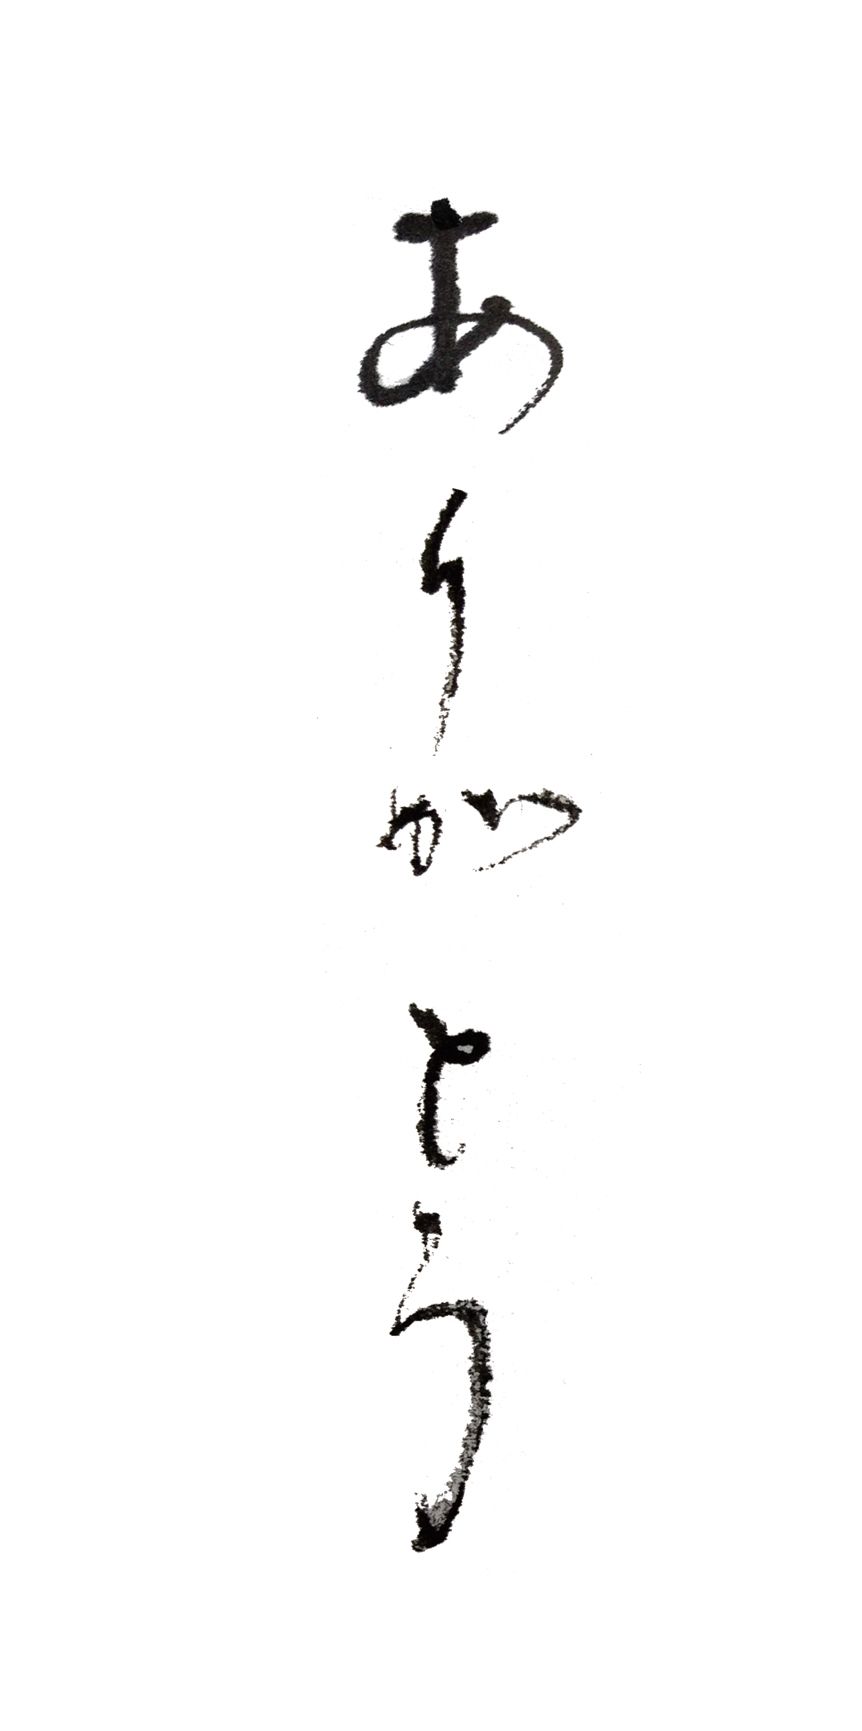 ありかとう